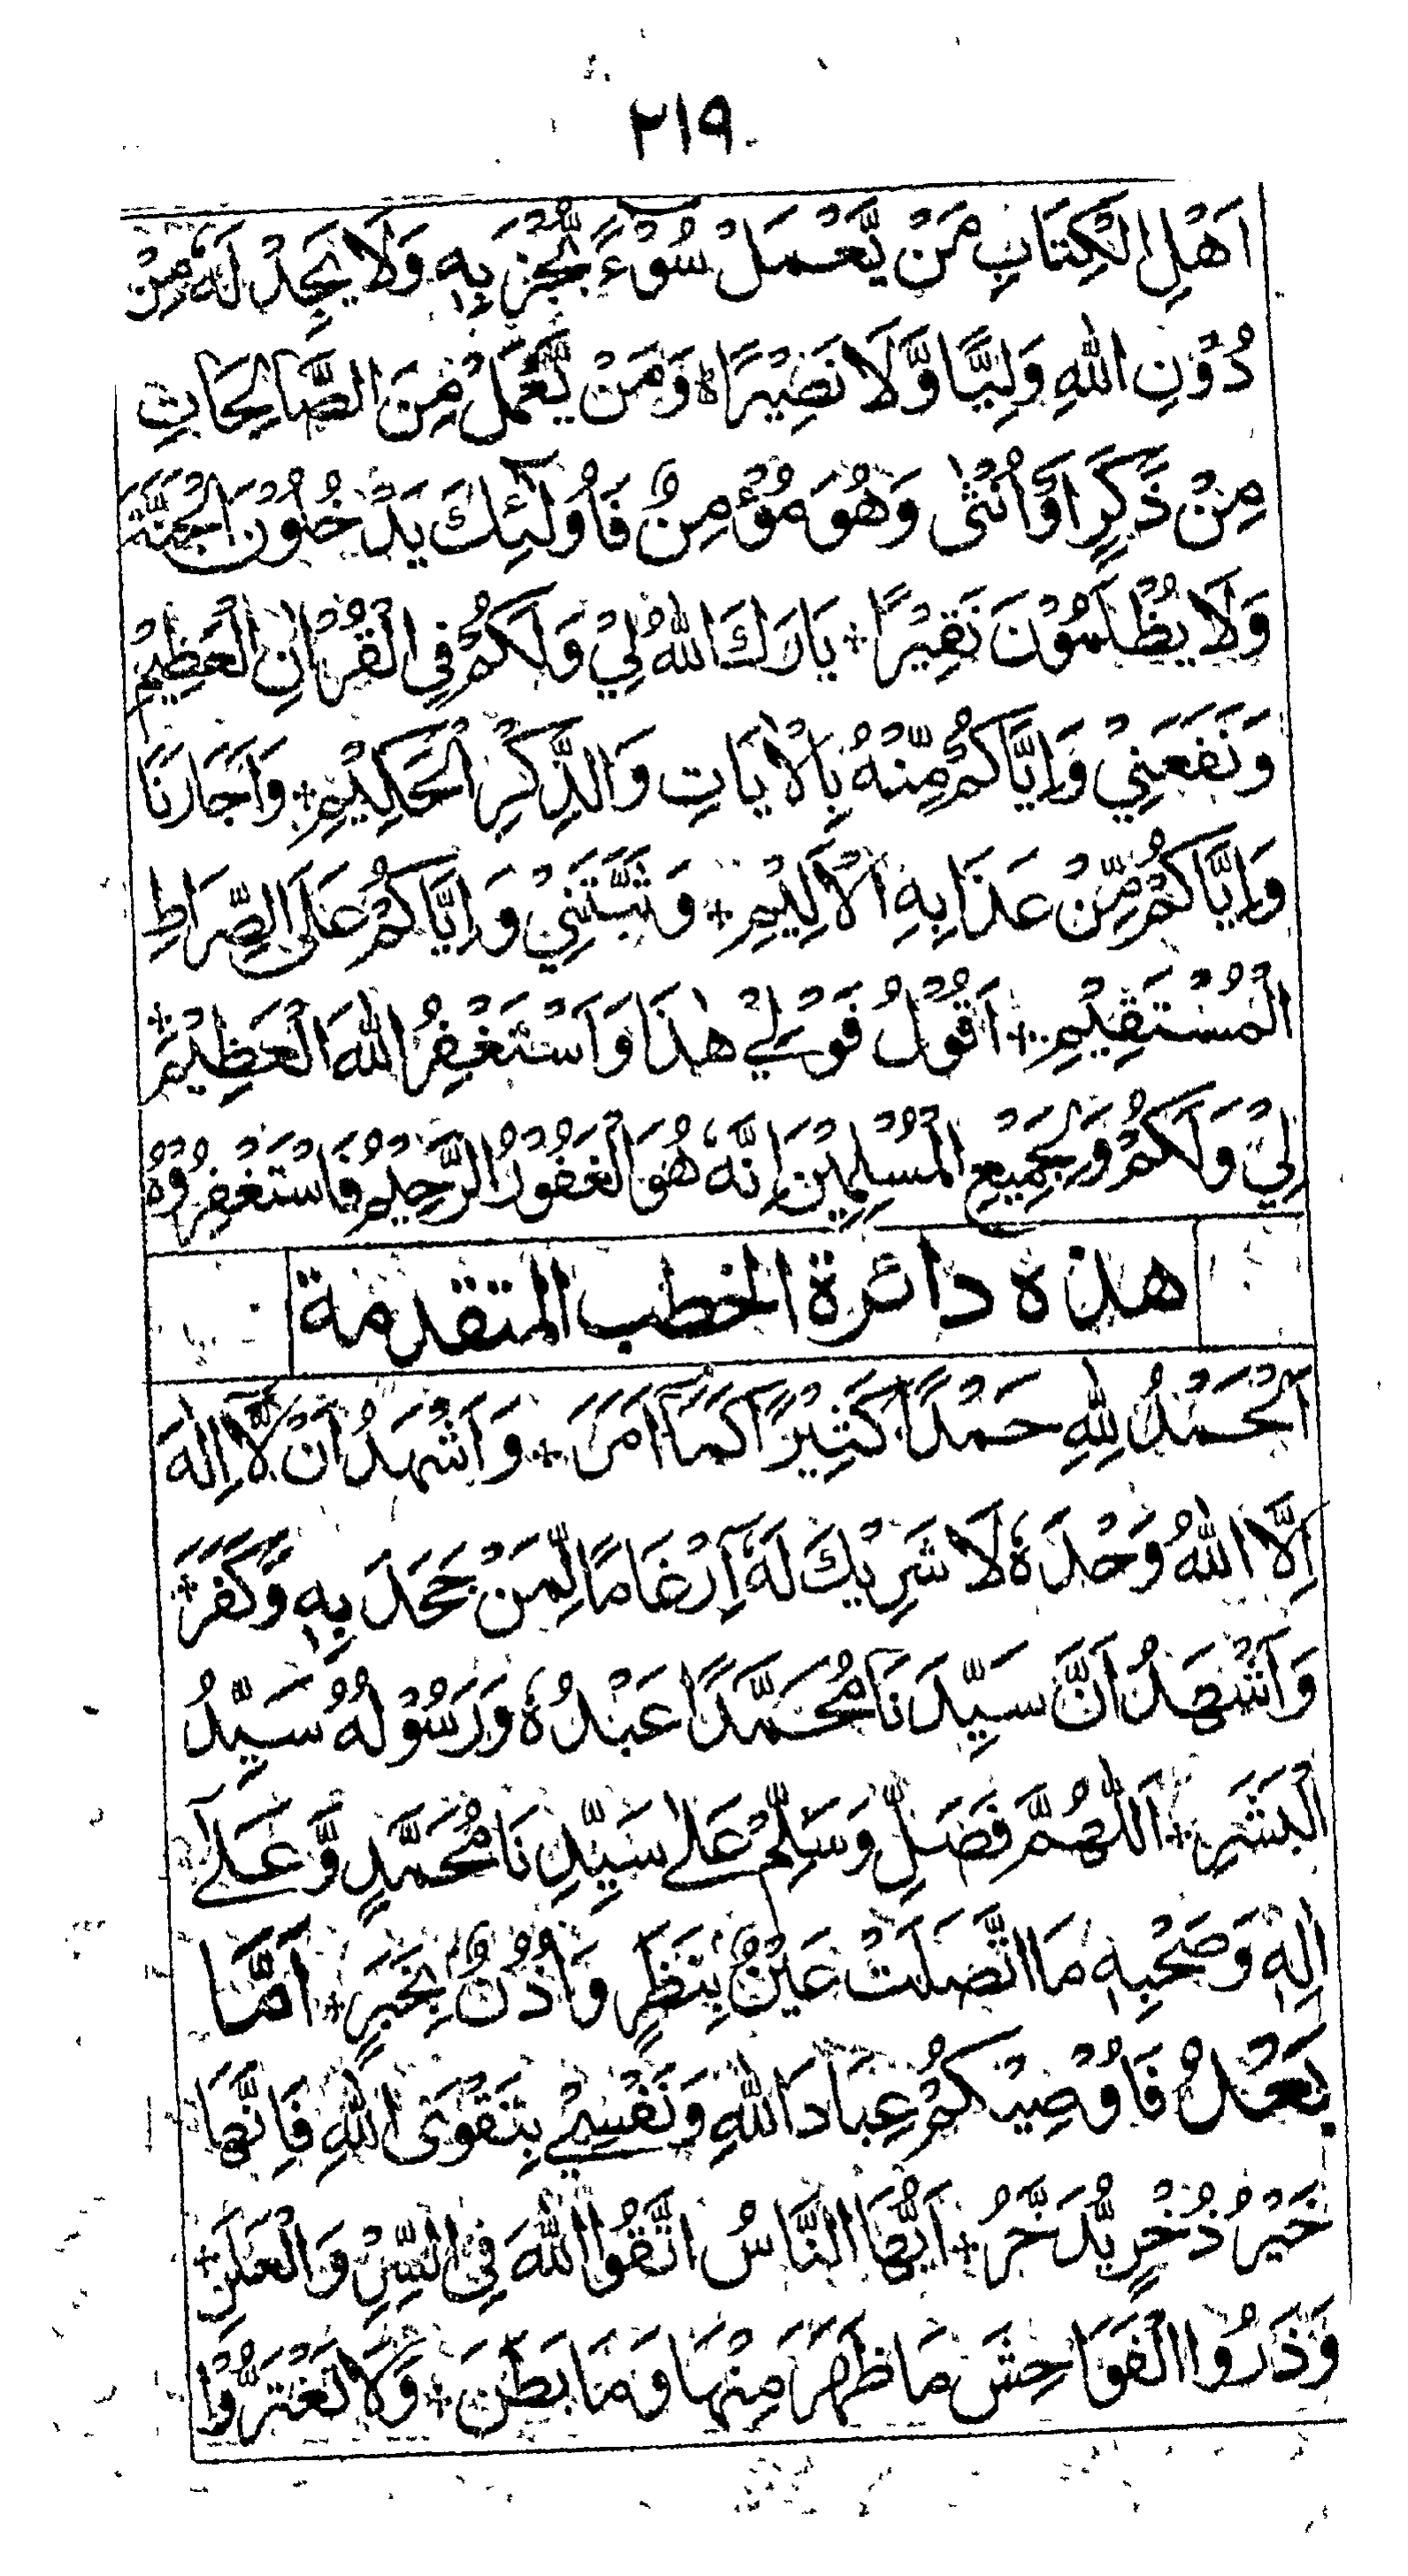 ٢١٩
اَهْلِ الْكِتَابِ مَنْ يَّعْمَلْ سُوْءً يُّجْزَ بِهٖ وَلَا يَجِدْ لَهٗ مِنْ
دُوْنِ اللّٰهِ وَلِيًّا وَّلَا نَصِيْرًا ه وَمَنْ يَّعْمَلْ مِنَ الصَّالِحَاتِ
مِنْ ذَكَرٍ اَوْ اُنْثٰى وَهُوَ مُؤْمِنٌ فَاُولٰٓئِكَ يَدْخُلُوْنَ الْجَنَّةَ
وَلَا يُظْلَمُوْنَ نَقِيْرًا + بَارَكَ اللّٰهُ لِيْ وَلَكُمْ فِي الْقُرْاٰنِ الْعَظِيْمِ
وَنَفَعَنِيْ وَاِيَّاكُمْ مِّنْهُ بِالْاٰيَاتِ وَالذِّكْرِ الْحَكِيْمِ + وَاَجَارَنَا
وَاِيَّاكُمْ مِّنْ عَذَابِهِ الْاَلِيْمِ + وَثَبَّتَنِيْ وَاِيَّاكُمْ عَلَى الصِّرَاطِ
الْمُسْتَقِيْمِ + اَقُوْلُ قَوْلِيْ هٰذَا وَاَسْتَغْفِرُ اللّٰهَ الْعَظِيْمَ +
لِيْ وَلَكُمْ وَلِجَمِيْعِ الْمُسْلِمِيْنَ اِنَّهٗ هُوَ الْغَفُوْرُ الرَّحِيْمُ فَاسْتَغْفِرُوْهُ
هذه دائرة الخطب المتقدمة
اَلْحَمْدُ لِلّٰهِ حَمْدًا كَثِيْرًا كَمَآ اَمَرَ + وَاَشْهَدُ اَنْ لَّآ اِلٰهَ
اِلَّا اللّٰهُ وَحْدَهٗ لَا شَرِيْكَ لَهٗ اِرْغَامًا لِّمَنْ جَحَدَ بِهٖ وَكَفَرَ +
وَاَشْهَدُ اَنَّ سَيِّدَنَا مُحَمَّدًا عَبْدُهٗ وَرَسُوْلُهٗ سَيِّدُ
الْبَشَرِ + اَللّٰهُمَّ فَصَلِّ وَسَلِّمْ عَلٰى سَيِّدِنَا مُحَمَّدٍ وَّعَلٰٓى
اٰلِهٖ وَصَحْبِهٖ مَا اتَّصَلَتْ عَيْنٌ بِنَظَرٍ وَاُذُنٌ بِخَبَرٍ + اَمَّا
بَعْدُ فَاُوْصِيْكُمْ عِبَادَ اللّٰهِ وَنَفْسِيْ بِتَقْوَى اللّٰهِ فَاِنَّهَا
خَيْرُ ذُخْرٍ يُّدَّخَرُ + اَيُّهَا النَّاسُ اتَّقُوا اللّٰهَ فِي السِّرِّ وَالْعَلَنِ +
وَذَرُوا الْفَوَاحِشَ مَا ظَهَرَ مِنْهَا وَمَا بَطَنَ + وَلَا تَغْتَرُّوْا